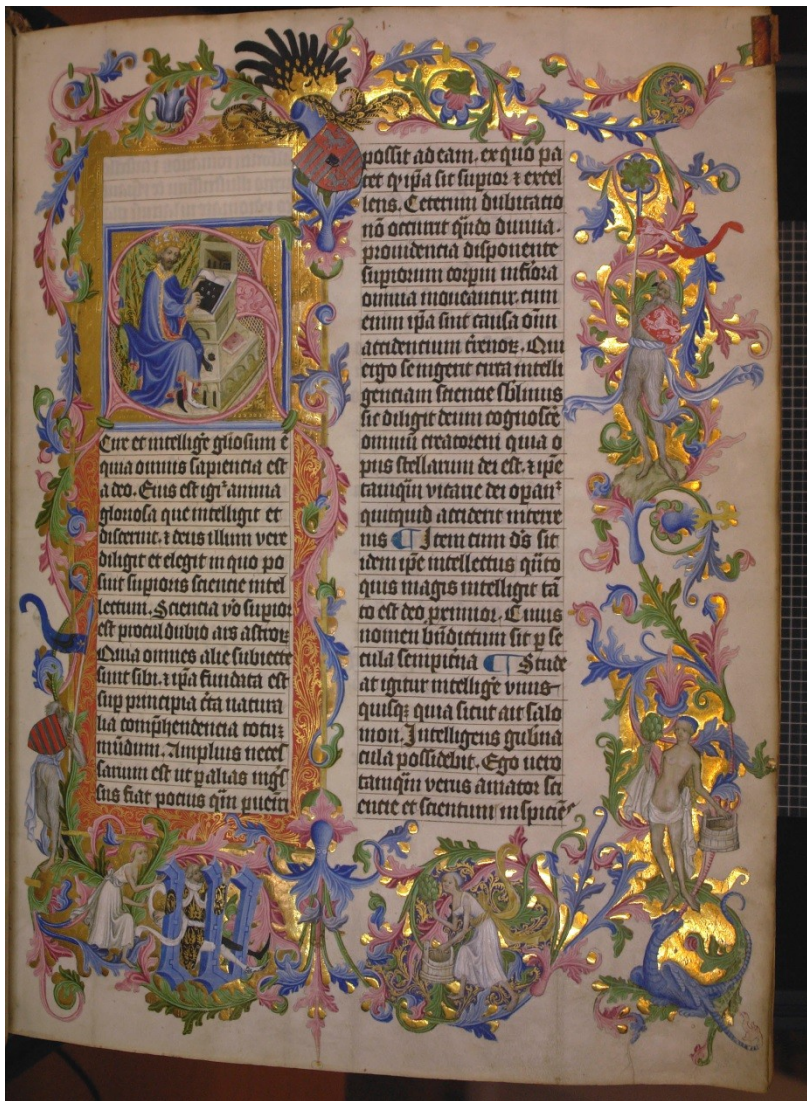 Cire et intellige᷑ gl̃iosum ē
quia omnis sapiencia est
a deo. Eius est igi᷑ anima
gloriosa que intelligit et
discernit. ⁊ deus illum vere
diligit et elegit in quo po
sint sup̃ioris sciencie intel
lectum. Sciencia v̾o sup̃ior
est procul dubio ars astroꝝ
Quia omnes alie subiecte
sunt sibi. ⁊ ip̃a fundata est
sup̃ principia c̃ta natura
lia comp̃hendencia totuꝫ
mūdum. Amplius neces
sarium est ut p̱ alias
sus fiat pocius qm̃
possit ad eam. ex quo pa
tet ꝙ ip̃a sit sup̃ior ⁊ excel
lens. Ceterum dubitacio
nō occurrit qn̄do diuina
prouidencia disponente
sup̃iorum corpm̃ inf̃iora
omnia moueantur. cum
enim ip̃a sint causa om̄i
accidencium t̾renoꝝ. Qui
ergo se ingerit circa intelli
genciam sciencie sb̃limis
sic diligit deum cognosce᷑
omniū creatorem quia o
pus stellarum dei est. ⁊ ip̃e
tamqm̃ vicarie dei opan᷑
quitquid acciderit in terre
nis ¶ Item cum d̄s sit
idem ip̃e intellectus qn̄to
quis magis intelligit tā
to est deo p̱ximior. Cuius
nomen bn̄dictum sit p̱ se
cula sempit̾na ¶ Stude
at igitur intellige᷑ vnus
quisqꝫ quia sicut ait salo
mon. Intelligens gub̾na
cula possidebit. Ego uero
tamqm̃ verus amator sci
encie et scientum inspicie᷑s